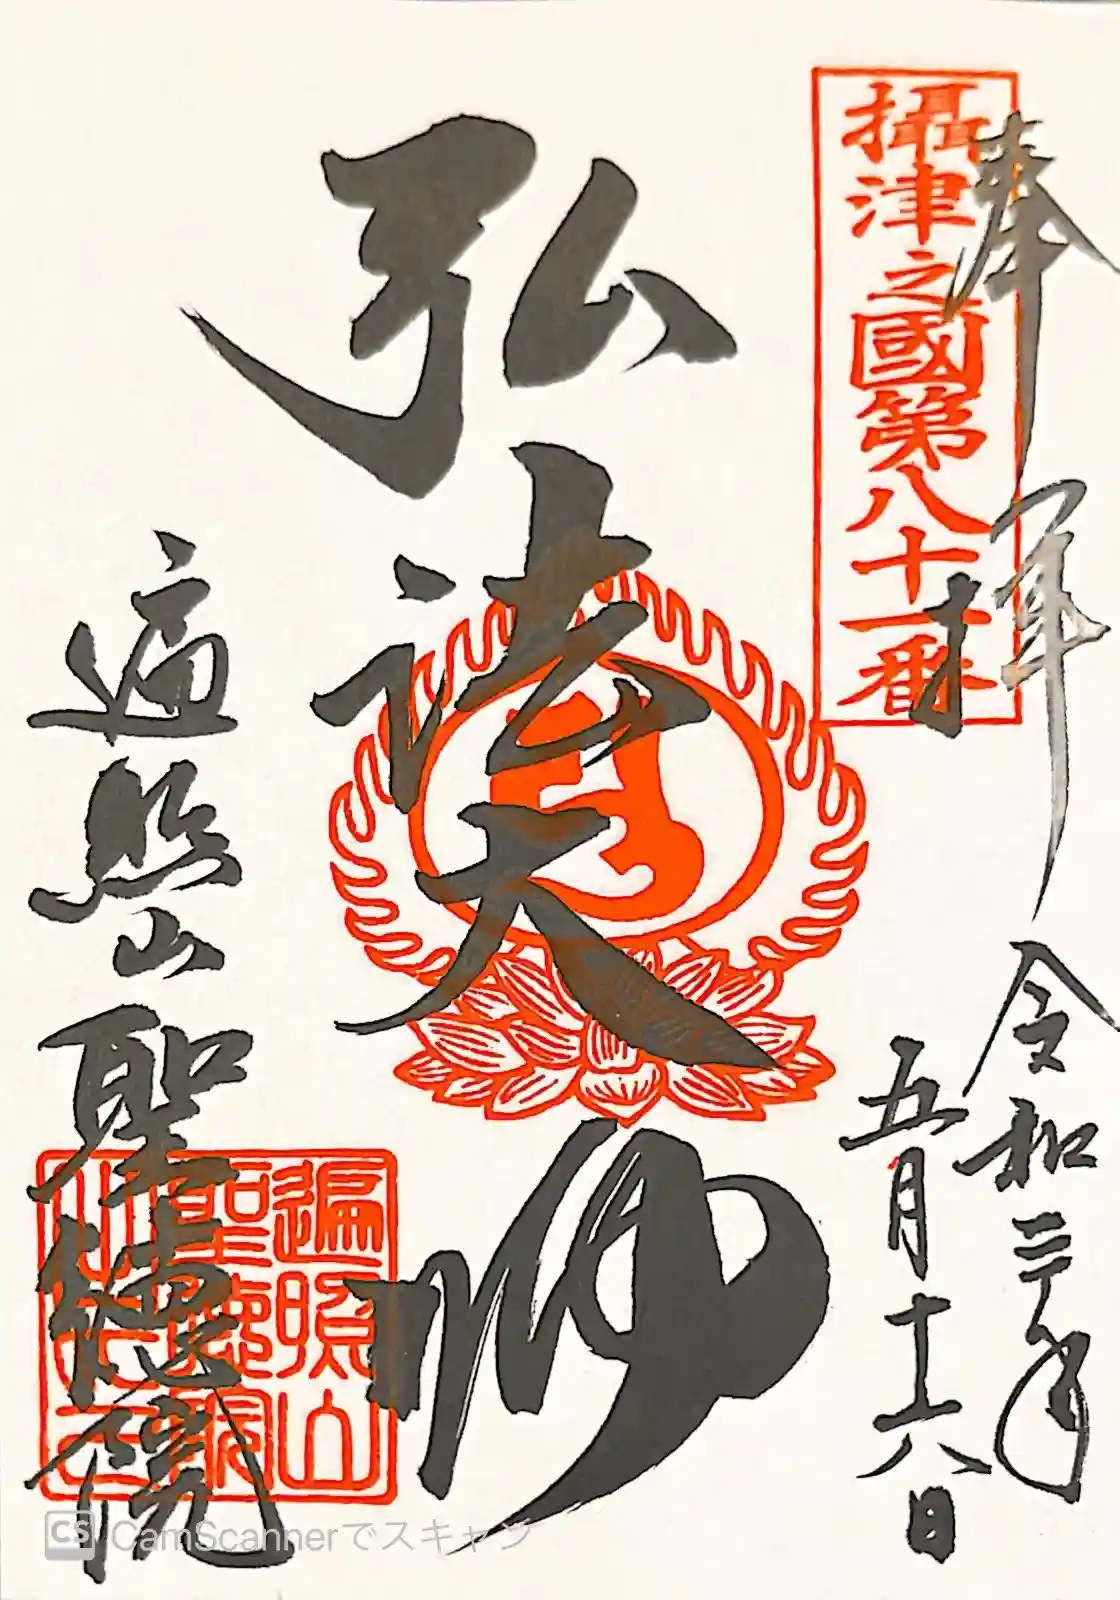 奉拝
攝津之國第八十一番
令和二年
五月十六日
弘法大師
遍照山
聖徳院
遍照山
CamScannerでスキャン